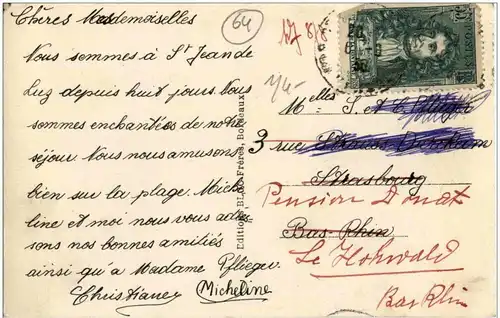 Chères Mesdemoiselles
Nous sommes à St Jean de
Luz depuis huit jours. Nous
sommes enchantées de notre
séjour. Nous nous amusons
bien sur la plage. Miche
line et moi nous vous adres
sons nos bonnes amitiés
ainsi qu'à Madame Pfliéger
Christiane Micheline
64
Edition BLOC Frères, Bordeaux
Melles S. et
3 rue
Strasbourg
Bas-Rhin
Pension Donat
Le Hohwald
Bas Rhin